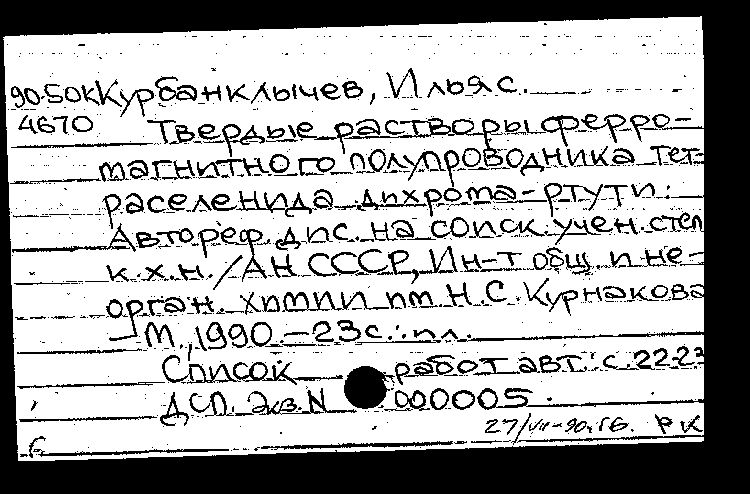 90-50к Курбанклычев, Ильяс.
4670 Твердые растворы ферро-
магнитного полупроводника тет-
раселенида дихрома-ртути:
Автореф. дис. на соиск. учен. степ
к.х.н. / АН СССР, Ин-т общ. и не-
орган. химии им. Н.С. Курнакова
– М., 1990. – 23 с.: ил.
Список работ авт.: с. 22-23
ДСП. Экз. N 000005.
27/VII-90г. РК